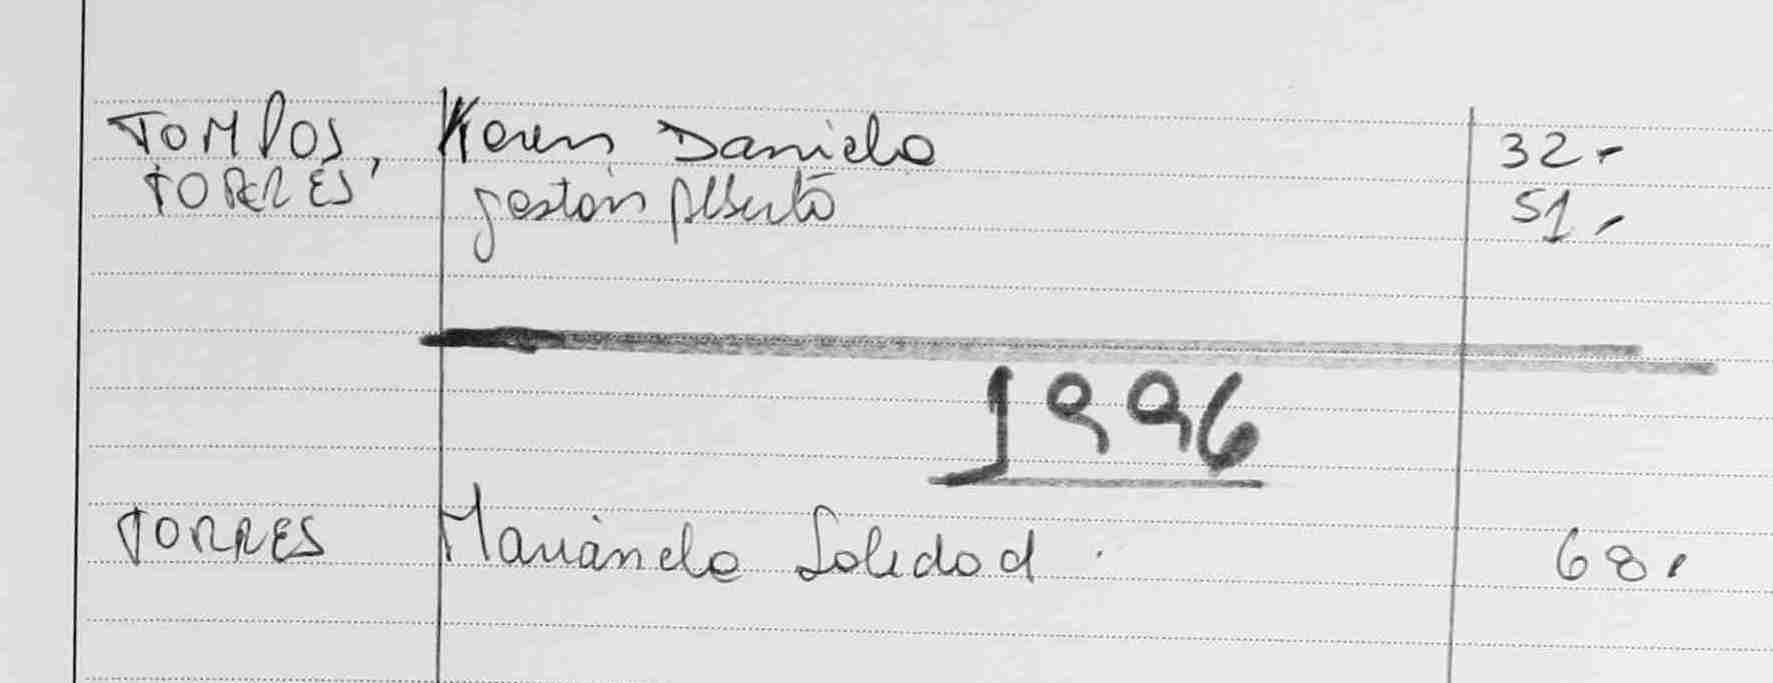 TOMPOS, Karen Daniela 32.-
TORRES, gastón Alberto 51.-
1996
TORRES Marianela Soledad. 68.